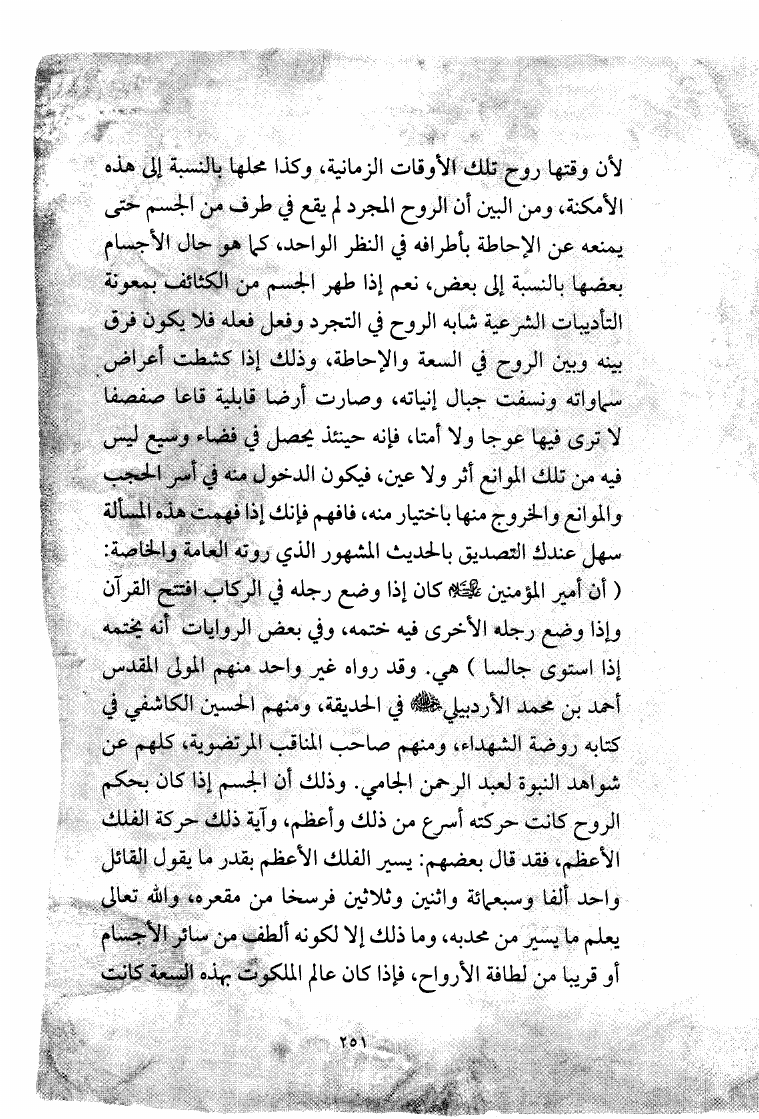 لأن وقتها روح تلك الأوقات الزمانية، وكذا محلها بالنسبة إلى هذه
الأمكنة، ومن البين أن الروح المجرد لم يقع في طرف من الجسم حتى
يمنعه عن الإحاطة بأطرافه في النظر الواحد، كما هو حال الأجسام
بعضها بالنسبة إلى بعض، نعم إذا طهر الجسم من الكثائف بمعونة
التأديبات الشرعية شابه الروح في التجرد وفعل فعله فلا يكون فرق
بينه وبين الروح في السعة والإحاطة، وذلك إذا كشطت أعراض
سماواته ونسفت جبال إنياته، وصارت أرضا قابلية قاعا صفصفا
لا ترى فيها عوجا ولا أمتا، فإنه حينئذ يحصل في فضاء وسيع ليس
فيه من تلك الموانع أثر ولا عين، فيكون الدخول منه في أسر الحجب
والموانع والخروج منها باختيار منه، فافهم فإنك إذا فهمت هذه المسألة
سهل عندك التصديق بالحديث المشهور الذي روته العامة والخاصة:
( أن أمير المؤمنين كان إذا وضع رجله في الركاب افتتح القرآن
وإذا وضع رجله الأخرى فيه ختمه، وفي بعض الروايات أنه يختمه
إذا استوى جالسا ) هي. وقد رواه غير واحد منهم المولى المقدس
أحمد بن محمد الأردبيلي في الحديقة، ومنهم الحسين الكاشفي في
كتابه روضة الشهداء، ومنهم صاحب المناقب المرتضوية، كلهم عن
شواهد النبوة لعبد الرحمن الجامي. وذلك أن الجسم إذا كان بحكم
الروح كانت حركته أسرع من ذلك وأعظم، وآية ذلك حركة الفلك
الأعظم، فقد قال بعضهم: يسير الفلك الأعظم بقدر ما يقول القائل
واحد ألفا وسبعمائة واثنين وثلاثين فرسخا من مقعره، والله تعالى
يعلم ما يسير من محدبه، وما ذلك إلا لكونه ألطف من سائر الأجسام
أو قريبا من لطافة الأرواح، فإذا كان عالم الملكوت بهذه السعة كانت
٢٥١